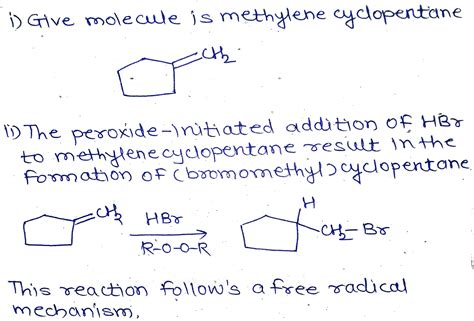 i) Give molecule is methylene cyclopentane
CH2
ii) The peroxide-initiated addition of HBr
to methylenecyclopentane result in the
formation of (bromomethyl) cyclopentane
CH2 HBr H
R-O-O-R CH2-Br
This reaction follow's a free radical
mechanism,